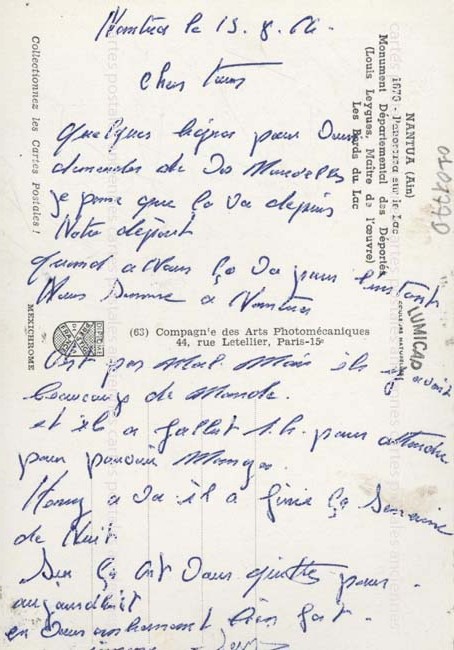 Nantua le 15.8.64.
Chers tous
quelques lignes pour vous
demander de vos Nouvelles
je pense que ça va depuis
Notre départ
quand a Nous ça va pour l'instant
Nous Sommes a Nantua
C'est pas mal. Mais il y avait
beaucoup de Monde.
et il a fallut 1.h. pour attendre
pour pouvoir Manger.
a va il a finie ça Semaine
de Nuit
Sur ça ont vous quittes pour
aujourd'huit
en vous embrassant bien fort.
NANTUA (Ain)
1670 - Panorama sur le Lac
Monument Départemental des Déportés
(Louis Leygues, Maître de l'œuvre)
Les Bords du Lac
Collectionnez les Cartes Postales !
MEXICHROME
(63) Compagnie des Arts Photomécaniques
44, rue Letellier, Paris-15e
LUMICAP